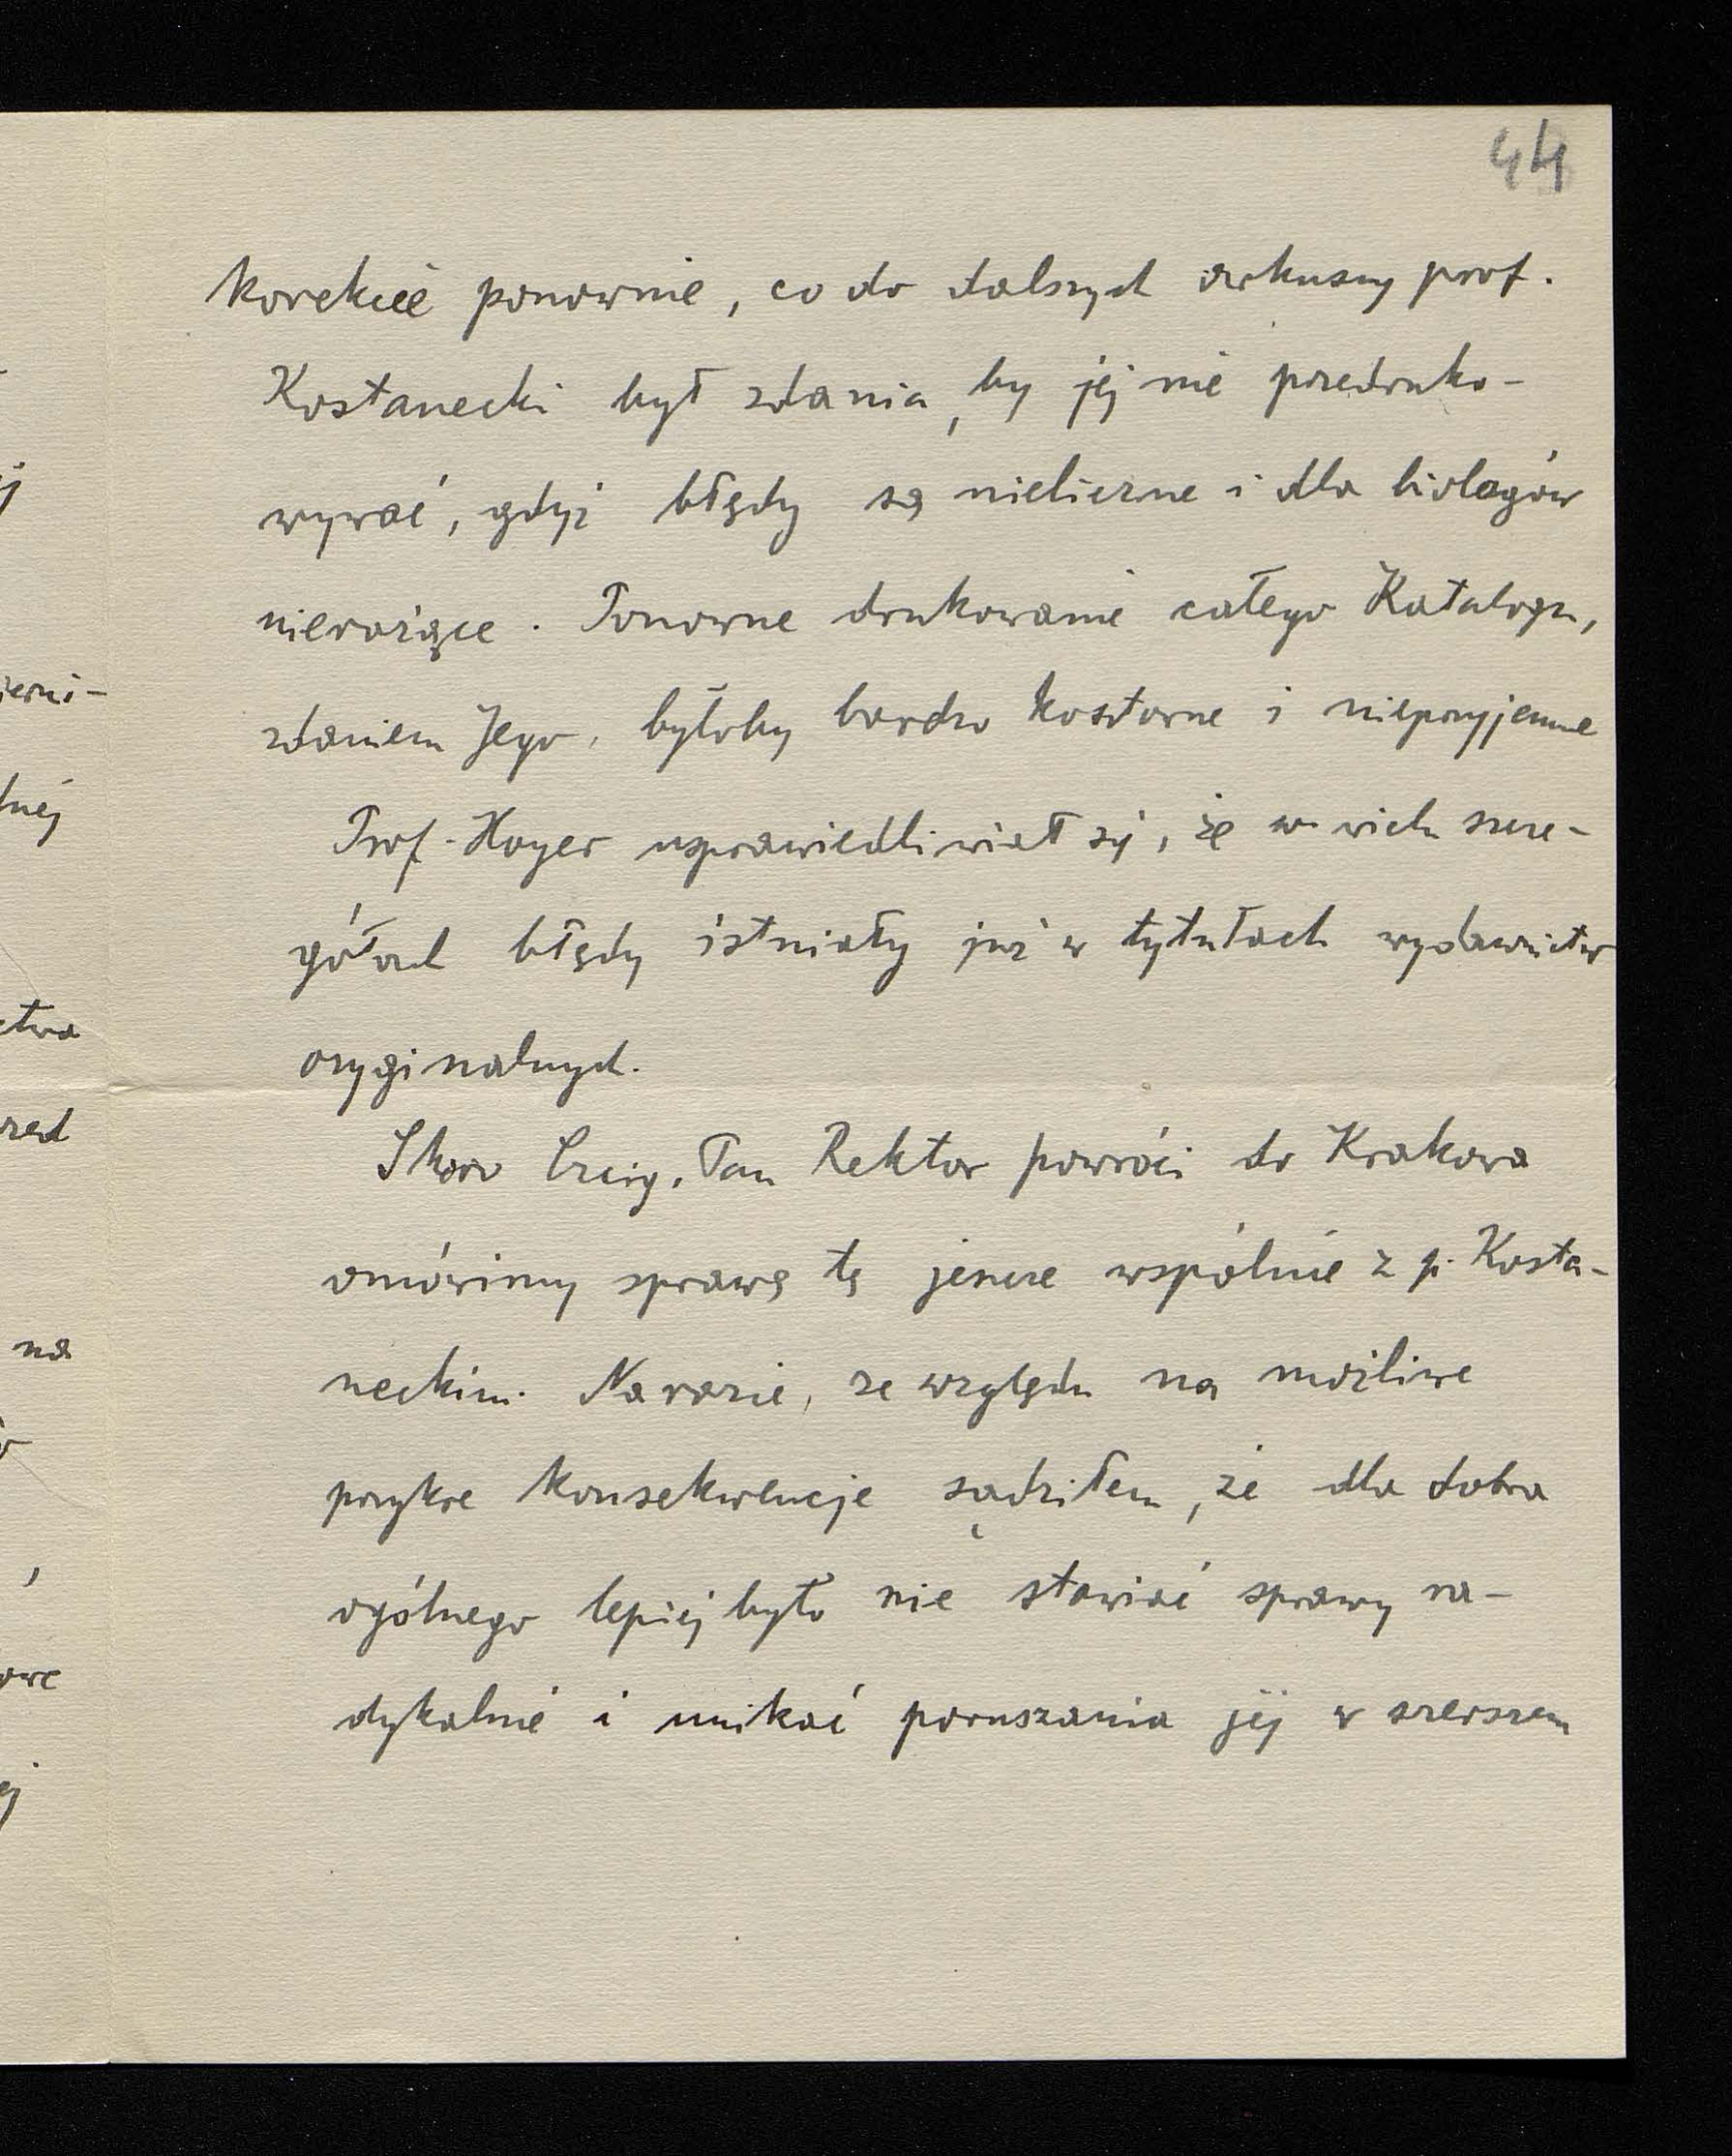 44
korekcie ponownie, co do dalszych arkuszy prof.
Kostanecki był zdania, by jej nie przedruko-
wywać, gdyż błędy są nieliczne i dla biologów
nierażące. Ponowne drukowanie całego Katalogu,
zdaniem Jego, byłoby bardzo kosztowne i nieprzyjemne
Prof. Hoyer usprawiedliwiał się, że w wielu szcze-
gółach błędy istniały już w tytułach wydawnictw
oryginalnych.
Skoro Czcig. Pan Rektor powróci do Krakowa
omówimy sprawę tę jeszcze wspólnie z p. Kosta-
neckim. Na razie, ze względu na możliwe
przykre konsekwencje sądziłem, że dla dobra
ogólnego lepiej było nie stawiać sprawy ra-
dykalnie i unikać poruszania jej w szerszem